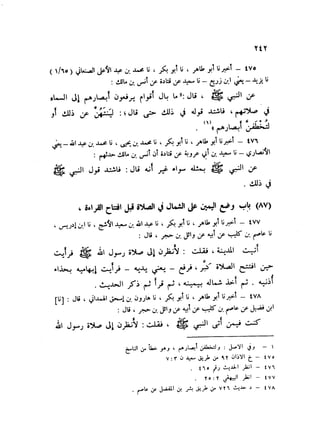 ٢٤٢
٤٧٥ - أخبرنا أبو طاهر ، نا أبو بكر ، نا محمد بن عبد الأعلى الصنعاني ( ١/٦٥ )
نا يزيد - يعني ابن زريع - نا سعيد عن قتادة عن أنس بن مالك :
عن النبي ﷺ ، قال : « ما بال أقوام يرفعون أبصارهم إلى السماء
في صلاتهم » ، فاشتد قوله في ذلك حتى قال : « لينتهن عن ذلك أو
لتخطفن أبصارهم » (١) .
٤٧٦ - أخبرنا أبو طاهر ، نا أبو بكر ، نا محمد بن يحيى ، نا محمد بن عبد الله - يعني
الأنصاري - نا سعيد عن أبي عروبة عن قتادة أن أنس بن مالك حدثهم :
عن النبي ﷺ بمثله سواء غير أنه قال : فاشتد قول النبي ﷺ
في ذلك .
(٨٧) باب وضع اليمين على الشمال في الصلاة قبل افتتاح القراءة .
٤٧٧ - أخبرنا أبو طاهر ، نا أبو بكر ، نا عبد الله بن سعيد الأشج ، نا ابن إدريس ،
نا عاصم بن كليب عن أبيه عن وائل بن حجر ، قال :
أتيت المدينة ، فقلت : لأنظرن إلى صلاة رسول الله ﷺ فرأيت
حين افتتح الصلاة كبر ، فرفع - يعني يديه - فرأيت إبهاميه بحذاء
أذنيه . ثم أخذ شماله بيمينه ، ثم قرأ ثم ذكر الحديث .
٤٧٨ - أخبرنا أبو طاهر ، نا أبو بكر ، نا هارون بن إسحق الهمداني ، قال : [نا]
ابن فضيل عن عاصم بن كليب عن أبيه عن وائل بن حجر ، قال :
كنت فيمن أتى النبي ﷺ ، فقلت : لأنظرن إلى صلاة رسول الله
١ - وفي الأصل : ولتخطفن أبصارهم ، وهو خطأ من الناسخ
٤٧٥ - خ الأذان ٩٢ من طريق سعيد ن ٣ : ٧
٤٧٦ - انظر الحديث رقم ٤٧٥ .
٤٧٧ - انظر البيهقي ٢ : ٢٥ .
٤٧٨ - د حديث ٧٢٦ من طريق بشر بن المفضل عن عاصم .